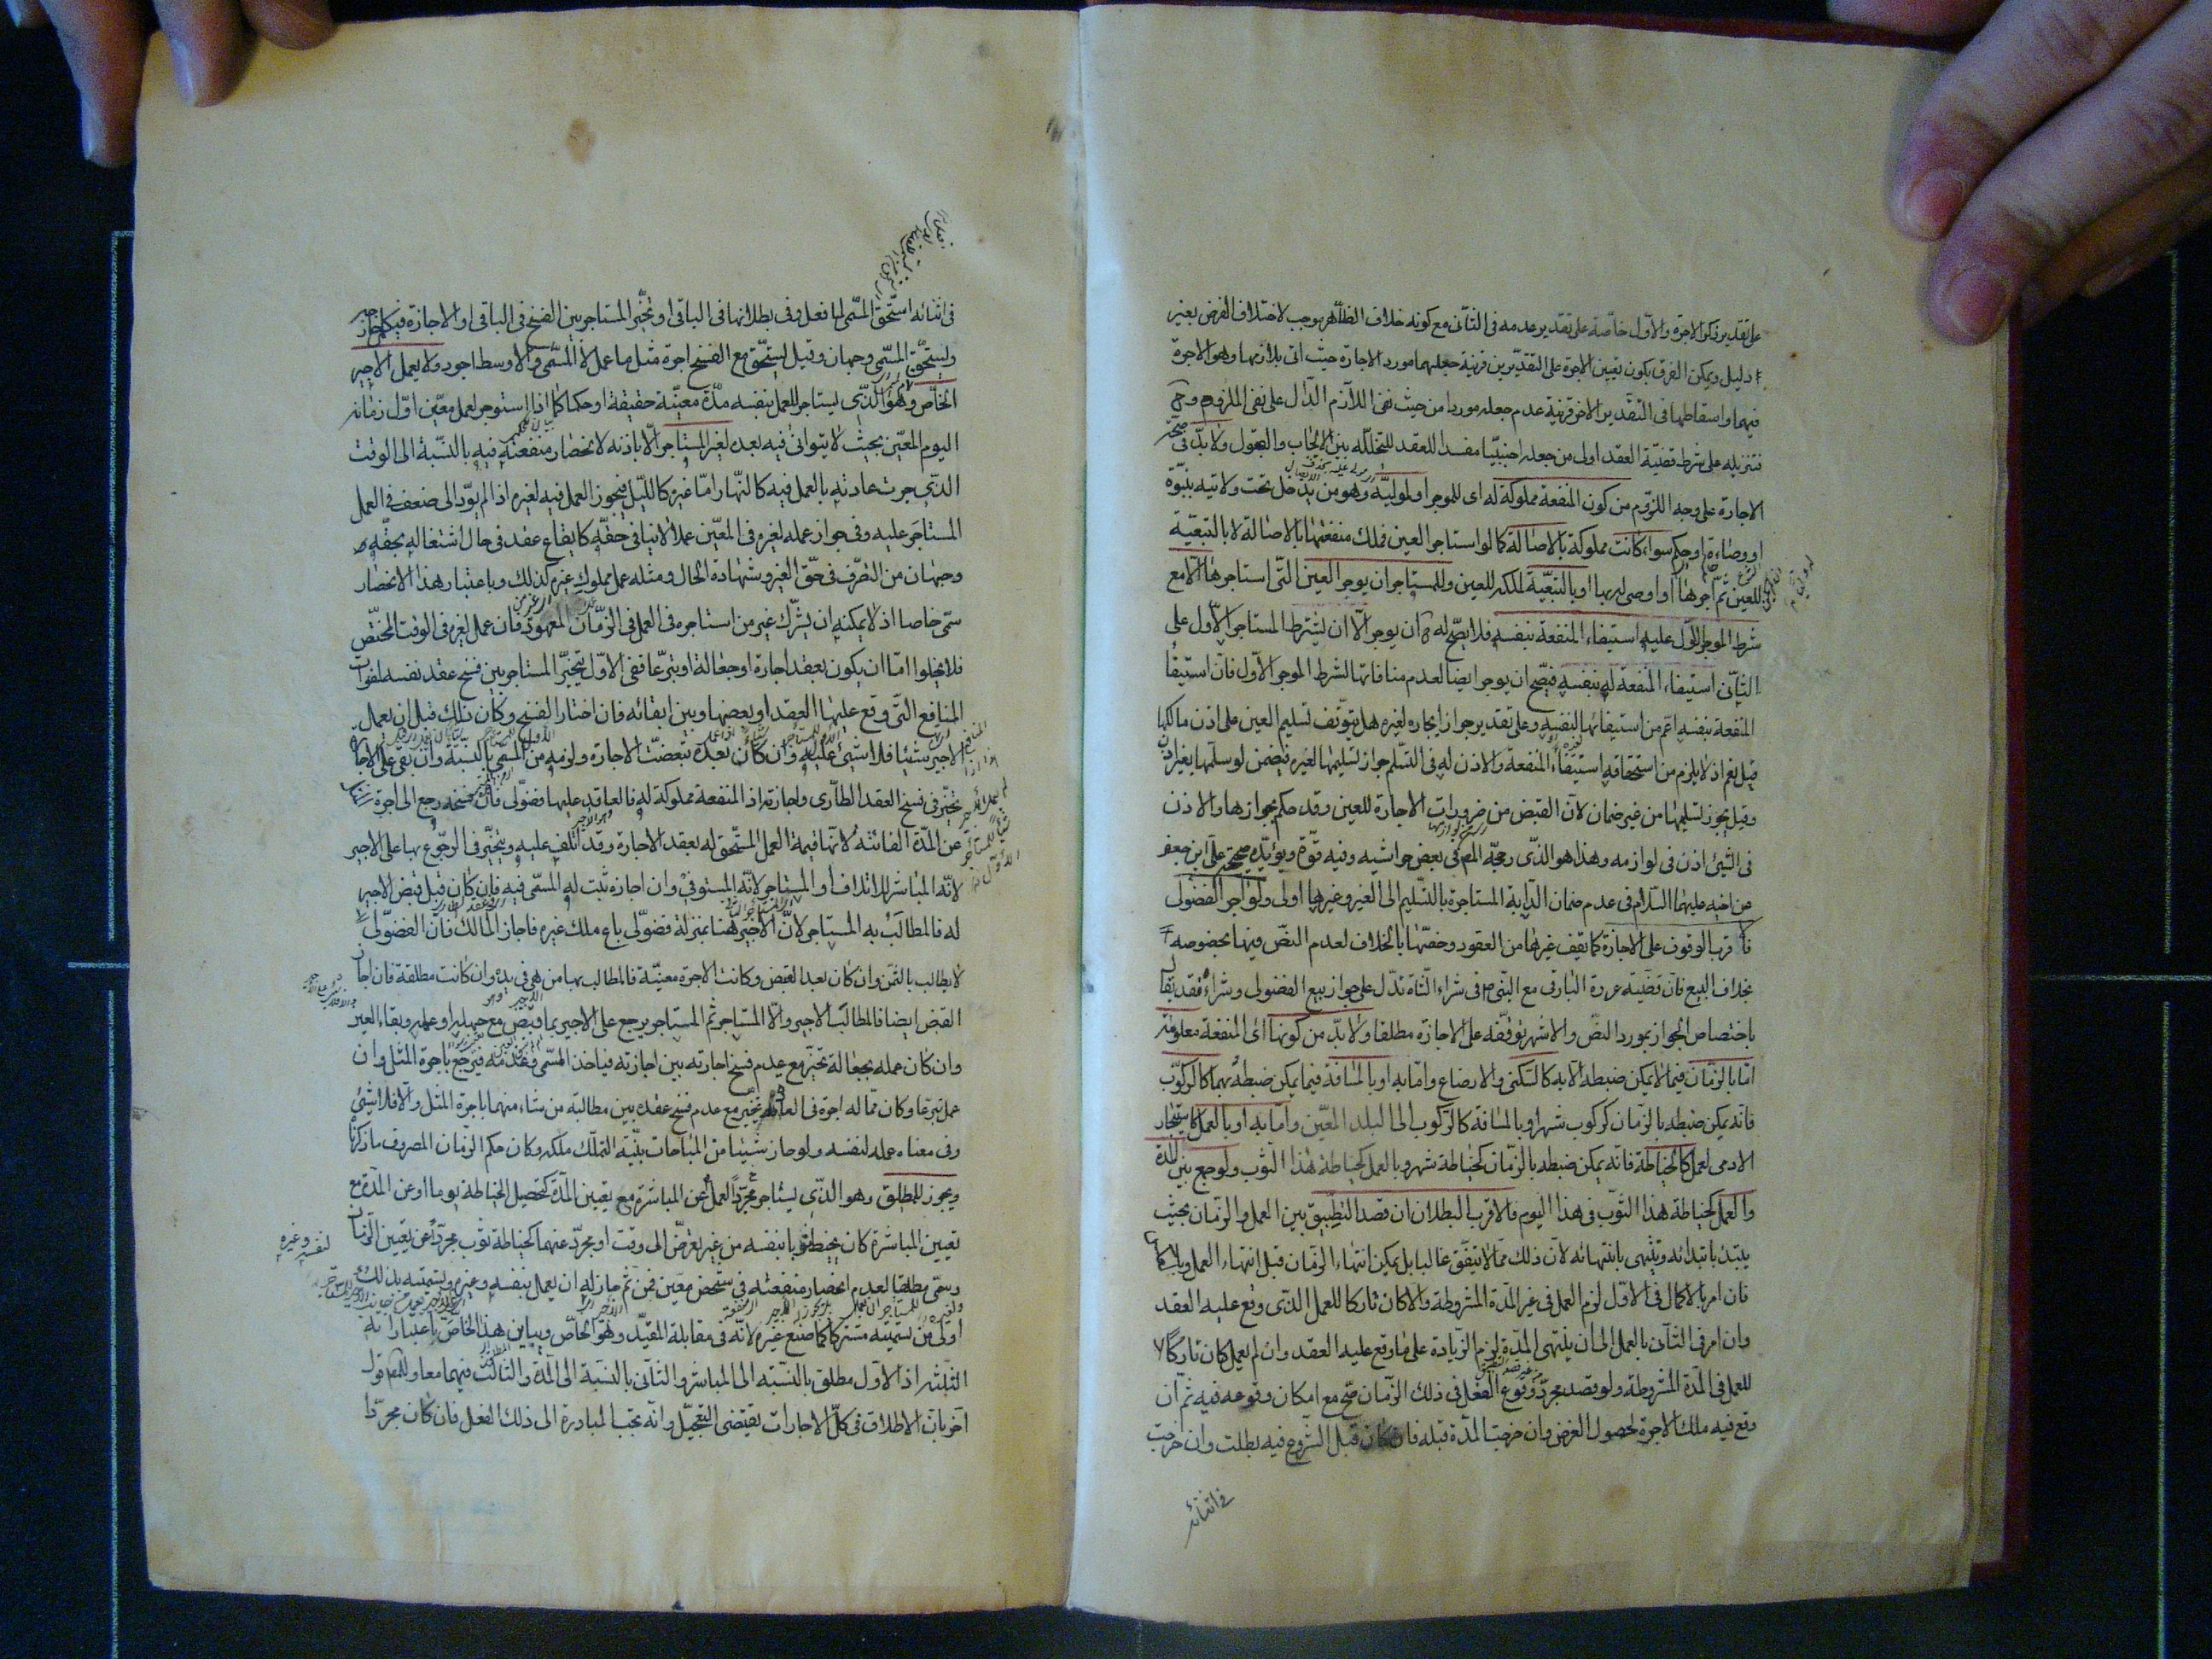 على تقدير ذكر الاجرة والاوّل خاصّة على تقدير عدمه فى الثانى مع كونه خلاف الظاهر يوجب لاختلاف الفرض بغير
دليل ويمكن الفرق بكون تعيين الاجرة على التقديرين قرينة جعلهما مورد الاجارة حيث اتى بلازمها وهو الاجرة
فيهما واسقاطها فى التقدير الاخر قرينة عدم جعله موردا من حيث نفى اللازم الدّال على نفى الملزوم وح
فتنزيله على شرط قضيّة العقد اولى من جعله اجنبيّا مفسدا للعقد لتخلّله بين الايجاب والقبول ولا بدّ فى صحّة
الاجارة على وجه اللزوم من كون المنفعة مملوكة له اى للموجر او لموليّه وهو من يدخل تحت ولايته ببنوّة
او وصاية او حكم سواء كانت مملوكة بالاصالة كما لو استاجر العين فملك منفعتها بالاصالة لا بالتبعيّة
للعين ثمّ اجرها او اوصى له بها او بالتبعيّة لملكه للعين وللمستاجر ان يوجر العين التّى استاجرها الّا مع
شرط الموجر الاوّل عليه استيفاء المنفعة بنفسه فلا يصحّ له ح ان يوجر الّا ان يشترط المستاجر الاوّل على
الثانى استيفاء المنفعة له بنفسه فيصحّ ان يوجر ايضا لعدم منافاتها لشرط الموجر الاوّل فانّ استيفاء
المنفعة بنفسه اعمّ من استيفائها لنفسه وعلى تقدير جواز ايجاره لغيره هل يتوقّف تسليم العين على اذن مالكها
قيل نعم اذ لا يلزم من استحقاقه استيفاء المنفعة والاذن له فى التسلّم جواز تسليمها لغيره فيضمن لو سلّمها بغير اذن
وقيل يجوز تسليمها من غير ضمان لانّ القبض من ضرورات الاجارة للعين وقد حكم بجوازها والاذن
فى الشّيئ اذن فى لوازمه وهذا هو الذّى رجّحه المص فى بعض حواشيه وفيه قوّة ويؤيّده صحيحة على ابن جعفر
عن اخيه عليهما السّلام فى عدم ضمان الدّابة المستاجرة بالتّسليم الى الغير وغيرها اولى ولو اجر الفضولى
فالاقرب الوقوف على الاجازة كما يقف غيرها من العقود وخصّها بالخلاف لعدم النصّ فيها بخصوصه
بخلاف البيع فانّ قضيّة عروة البارقى مع النّبى ص فى شراء الشّاة تدّل على جواز بيع الفضولى وشرائه فقد يقال
باختصاص الجواز بمورد النصّ والاشهر توقّفه على الاجازة مطلقا ولا بدّ من كونها اى المنفعة معلومة
امّا بالزّمان فيما لا يمكن ضبطه الّا به كالسّكنى والارضاع وامّا به او بالمسافة فيما يمكن ضبطه بهما كالرّكوب
فانّه يمكن ضبطه بالزّمان كركوب شهر او بالمسافة كالرّكوب الى البلد المعيّن وامّا به او بالعمل كاستيجار
الادمى لعمل كالخياطة فانّه يمكن ضبطه بالزّمان كخياطة شهر وبالعمل كخياطة هذا الثوب ولو جمع بين المدّة
والعمل كخياطة هذا الثّوب فى هذا اليوم فالاقرب البطلان ان قصد التّطبيق بين العمل والزّمان بحيث
يبتدئ بابتدائه وينتهى بانتهائه لانّ ذلك ممّا لا يتفّق غالبا بل يمكن انتهاء الزّمان قبل انتهاء العمل وبالعكس
فان امر بالاكمال فى الاوّل لزم العمل فى غير المدّة المشروطة والّا كان تاركا للعمل الذّى وقع عليه العقد
وان امر فى الثانى بالعمل الى ان ينتهى المدّة لزم الزّيادة على ما وقع عليه العقد وان لم يعمل كان تاركا
للعمل فى المدّة المشروطة ولو قصد مجرّد وقوع الفعل فى ذلك الزّمان صحّ مع امكان وقوعه فيه ثم ان
وقع فيه ملك الاجرة لحصول الغرض وان خرجت المدّة قبله فان كان قبل الشّروع فيه بطلت وان خرجت
فى اثنائه
فى اثنائه استحقّ المسمّى لما فعل وفى بطلانها فى الباقى او تخيّر المستاجر بين الفسخ فى الباقى او الاجازة فيكمل خارجه
ويستحقّ المسمّى وجهان وقيل يستحقّ مع الفسخ اجرة مثل ما عمل لا المسمّى والاوسط اجود ولا يعمل الاجير
الخاصّ وهو الذّى يستاجر للعمل بنفسه مدّة معيّنة حقيقة او حكما كما اذا استوجر لعمل معيّن اوّل زمانه
اليوم المعيّن بحيث لا يتوانى فيه بعده لغير المستاجر الّا باذنه لانحصار منفعته فيه بالنسبة الى الوقت
الذّى جرت عادته بالعمل فيه كالنّهار امّا غيره كاللّيل فيجوز العمل فيه لغيره اذا لم يؤدّ الى ضعف فى العمل
المستاجر عليه وفى جواز عمله لغيره فى المعيّن عملا لا ينافى حقّه كايقاع عقد فى حال اشتغاله بحقّه
وجهان من التصّرف فى حقّ الغير وشهادة الحال ومثله عمل مملوك غيره كذلك وباعتبار هذا الانحصار
سمّى خاصا اذ لا يمكنه ان يشرّك غير من استاجره فى العمل فى الزّمان المعهود فان عمل لغيره فى الوقت المختصّ
فلا يخلوا امّا ان يكون بعقد اجارة او جعالة او تبرّعا ففى الاوّل يتخيّر المستاجر بين فسخ عقد نفسه لفوات
المنافع التّى وقع عليها العقد او بعضها وبين ابقائه فان اختار الفسخ وكان ذلك قبل ان يعمل
الاجير شيئا فلا شيئ عليه وان كان بعده تبعضّت الاجارة ولزمه من المسمّى بالنسبة وان بقى على الاجارة
تخيّر فى فسخ العقد الطارى واجازته اذ المنفعة مملوكة له فالعاقد عليها فضولى فان فسخه رجع الى اجرة
عن المدّة الفائتة لانّها قيمة العمل المستحّق له بعقد الاجارة وقد اتلف عليه ويتخيّر فى الرّجوع بها على الاجير
لانّه المباشر للاتلاف او المستاجر لانّه المستوفى وان اجازه ثبت له المسمّى فيه فان كان قبل قبض الاجير
له فالمطالب به المستاجر لانّ الاجير هنا بمنزلة فضولّى باع ملك غيره فاجاز المالك فانّ الفضولّى
لا يطالب بالثمن وان كان بعد القبض وكانت الاجرة معيّنة فالمطالب بها من هى فى يده وان كانت مطلقة فان اجاز
القبض ايضا فالمطالب الاجير والّا المستاجر ثم المستاجر يرجع على الاجير بما قبض مع جهله او علمه وبقاء العين
وان كان عمله بجعالة تخيّر مع عدم فسخ اجارته بين اجازته فياخذ المسمّى وعدمه فيرجع باجرة المثل وان
عمل تبرّعا وكان ممّا له اجرة فى العادة تخيّر مع عدم فسخ عقده بين مطالبة من شاء منهما باجرة المثل والّا فلا شيئ
وفى معناه عمله لنفسه ولو حاز شيئا من المباحات بنيّة التملّك ملكه وكان حكم الزّمان المصروف ما ذكرنا
ويجوز للمطلق وهو الذّى يستاجر لعمل مجرّد عن المباشرة مع تعيين المدّة كتحصيل الخياطة يوما او عن المدّة مع
تعيين المباشرة كان يخيط ثوبا بنفسه من غير تعرّض الى وقت او مجرّد عنهما كخياطة ثوب مجرّد عن تعيين الزّمان
وسمّى مطلقا لعدم انحصار منفعته فى شخص معيّن فمن ثمّ جاز له ان يعمل لنفسه وغيره وتسميته بذلك
اولى من تسميته مشتركا كما صنع غيره لانّه فى مقابلة المقيّد وهو الخاصّ ويباين هذا الخاصّ باعتباراته
الثّلثة اذ الاوّل مطلق بالنّسبة الى المباشر والثّانى بالنّسبة الى المدّة والثالث فيهما معا وللمص قول
اخر بانّ الاطلاق فى كلّ الاجارات يقتضى التّعجيل وانّه يجب المبادرة الى ذلك الفعل فان كان مجرّدا